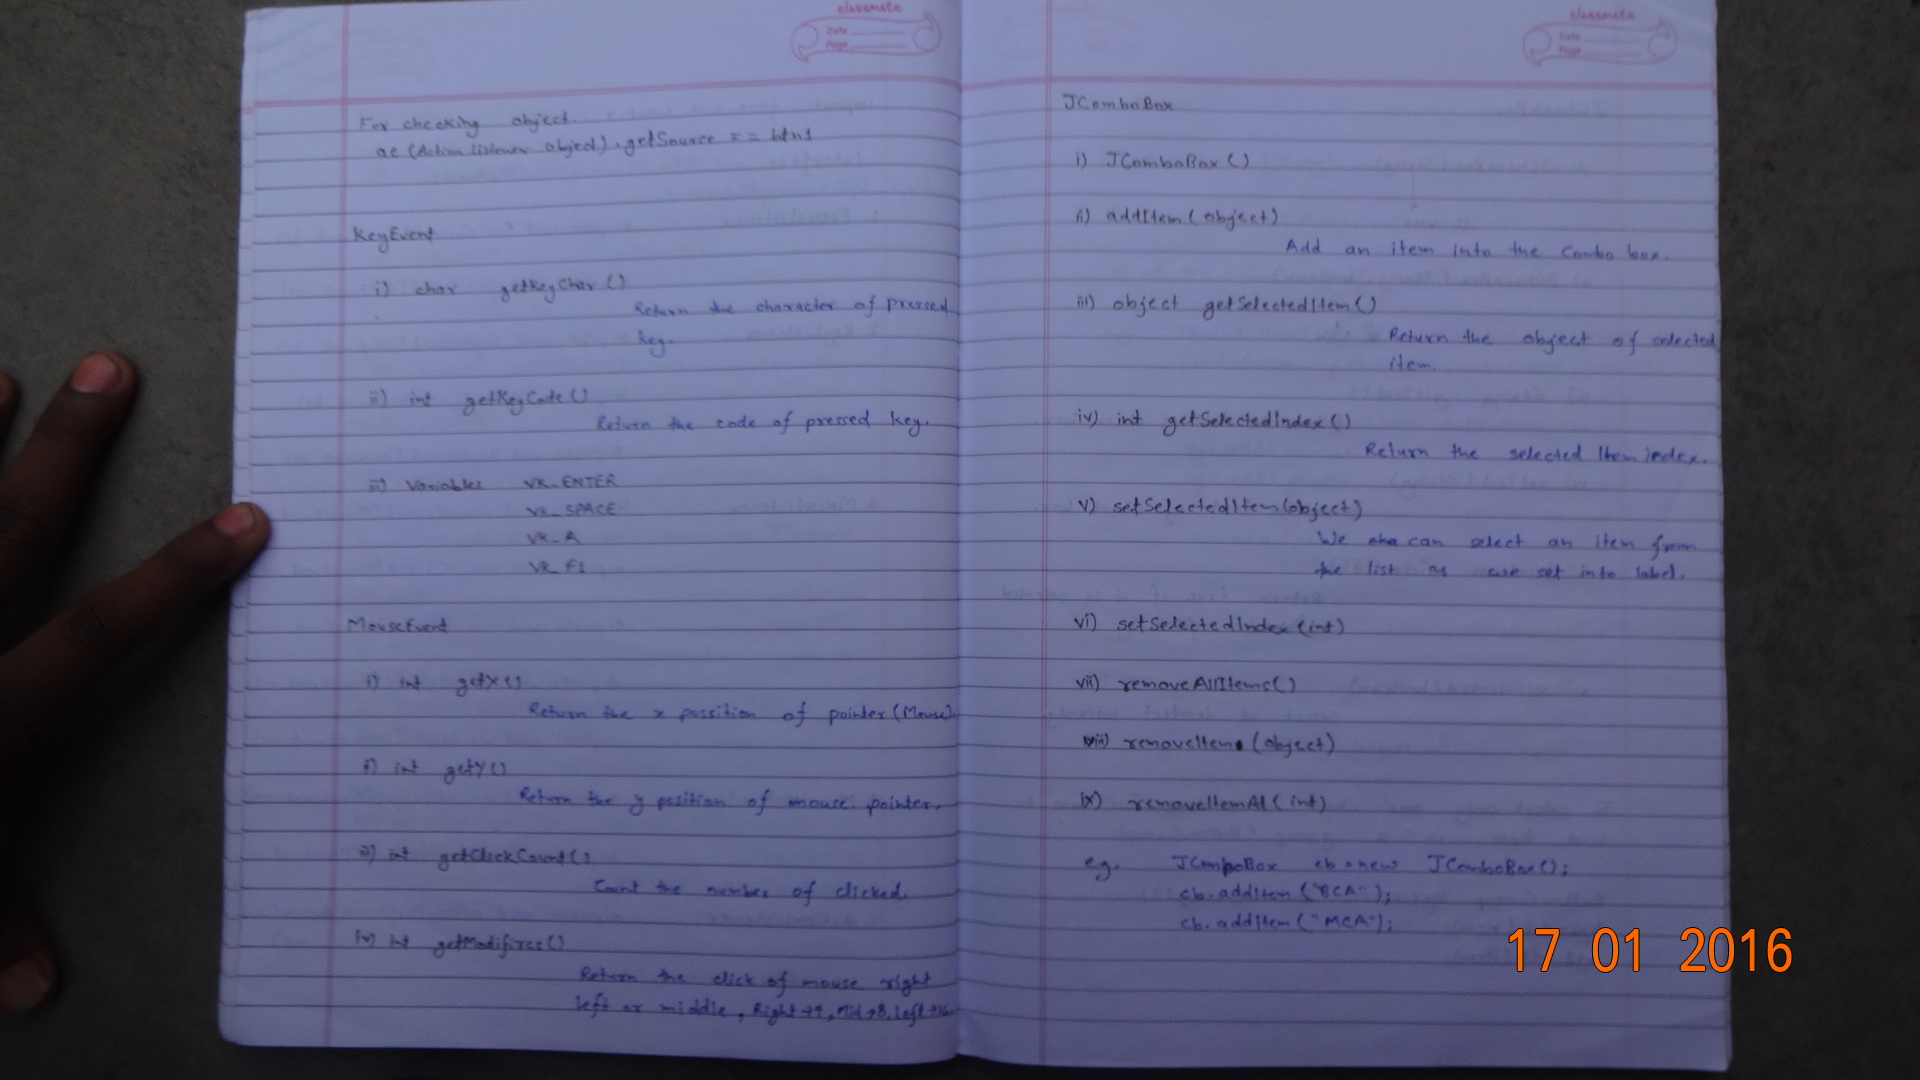 classmate
Date
Page
For checking object
ae (Action listener object).getSource == btn1
KeyEvent
i) char getKeyChar()
Return the character of pressed
key.
ii) int getKeyCode()
Return the code of pressed key.
iii) Variables VK_ENTER
VK_SPACE
VK_A
VK_F1
MouseEvent
i) int getX()
Return the x possition of pointer (Mouse).
ii) int getY()
Return the y position of mouse pointer.
iii) int getClickCount()
Count the number of clicked.
iv) int getModifires()
Return the click of mouse right
left or middle, Right→4, Mid→8, Left→16
classmate
Date
Page
JComboBox
i) JComboBox()
ii) addItem(object)
Add an item into the combo box.
iii) object getSelectedItem()
Return the object of selected
item.
iv) int getSelectedIndex()
Return the selected Item index.
v) setSelectedItem(object)
We can select an item from
the list as we set into label.
vi) setSelectedIndex(int)
vii) removeAllItems()
viii) removeItem(object)
ix) removeItemAt(int)
eg. JComboBox cb = new JComboBox();
cb.addItem("BCA");
cb.addItem("MCA");
17 01 2016